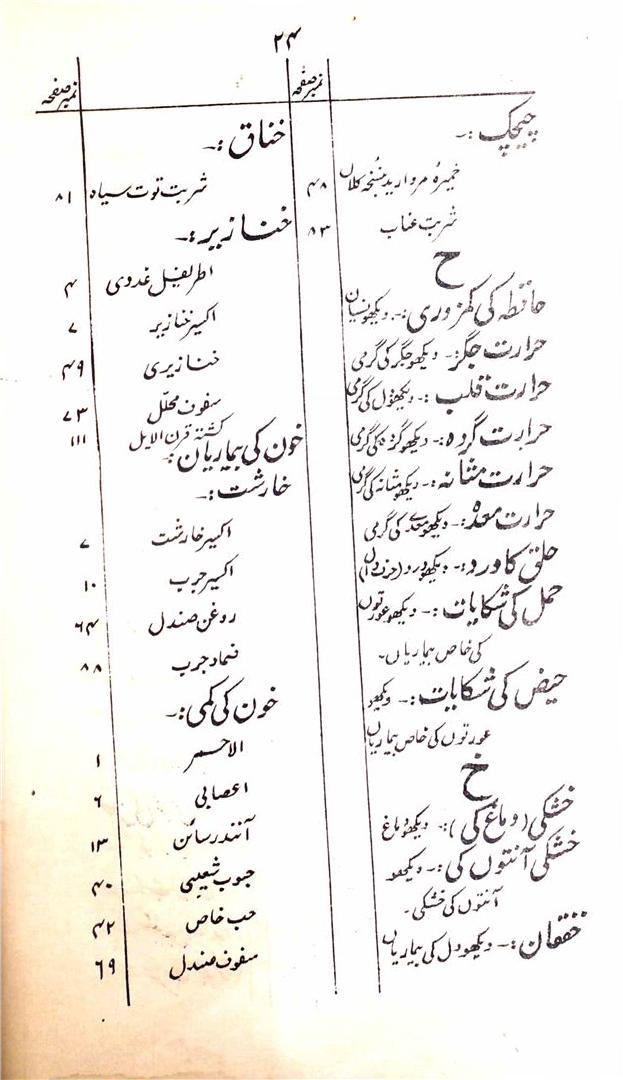 ۲۴
نمبر صفحہ
چیچک :۔
خمیرہ مروارید بنسخہ کلاں ۴۸
شربت عناب ۸۳
ح
حافظہ کی کمزوری :۔ دیکھو نسیان
حرارت جگر :۔ دیکھو جگر کی گرمی
حرارت قلب :۔ دیکھو دل کی گرمی
حرارت گردہ :۔ دیکھو گردہ کی گرمی
حرارت مثانہ :۔ دیکھو مثانہ کی گرمی
حرارت معدہ :۔ دیکھو معدے کی گرمی
حلق کا درد :۔ دیکھو درد (حرف د)
حمل کی شکایات :۔ دیکھو عورتوں
کی خاص بیماریاں۔
حیض کی شکایات :۔ دیکھو
عورتوں کی خاص بیماریاں
خ
خشکی (دماغ کی) :۔ دیکھو دماغ
خشکی آنتوں کی :۔ دیکھو
آنتوں کی خشکی۔
خفقان :۔ دیکھو دل کی بیماریاں
نمبر صفحہ
خناق :۔
شربت توت سیاہ ۸۱
خنازیر :۔
اطریفل غددی ۴
اکسیر خنازیر ۷
خنازیری ۴۹
سفوف محلل ۷۳
کشتہ قرن الایل ۱۱۱
خون کی بیماریاں :۔
خارشت :۔
اکسیر خارشت ۷
اکسیر جرب ۱۰
روغن صندل ۶۴
ضماد جرب ۸۸
خون کی کمی :۔
الاحمر ۱
اعصابی ۶
آنند رسائن ۱۳
حبوب شعیبی ۴۰
حب خاص ۴۲
سفوف صندل ۶۹